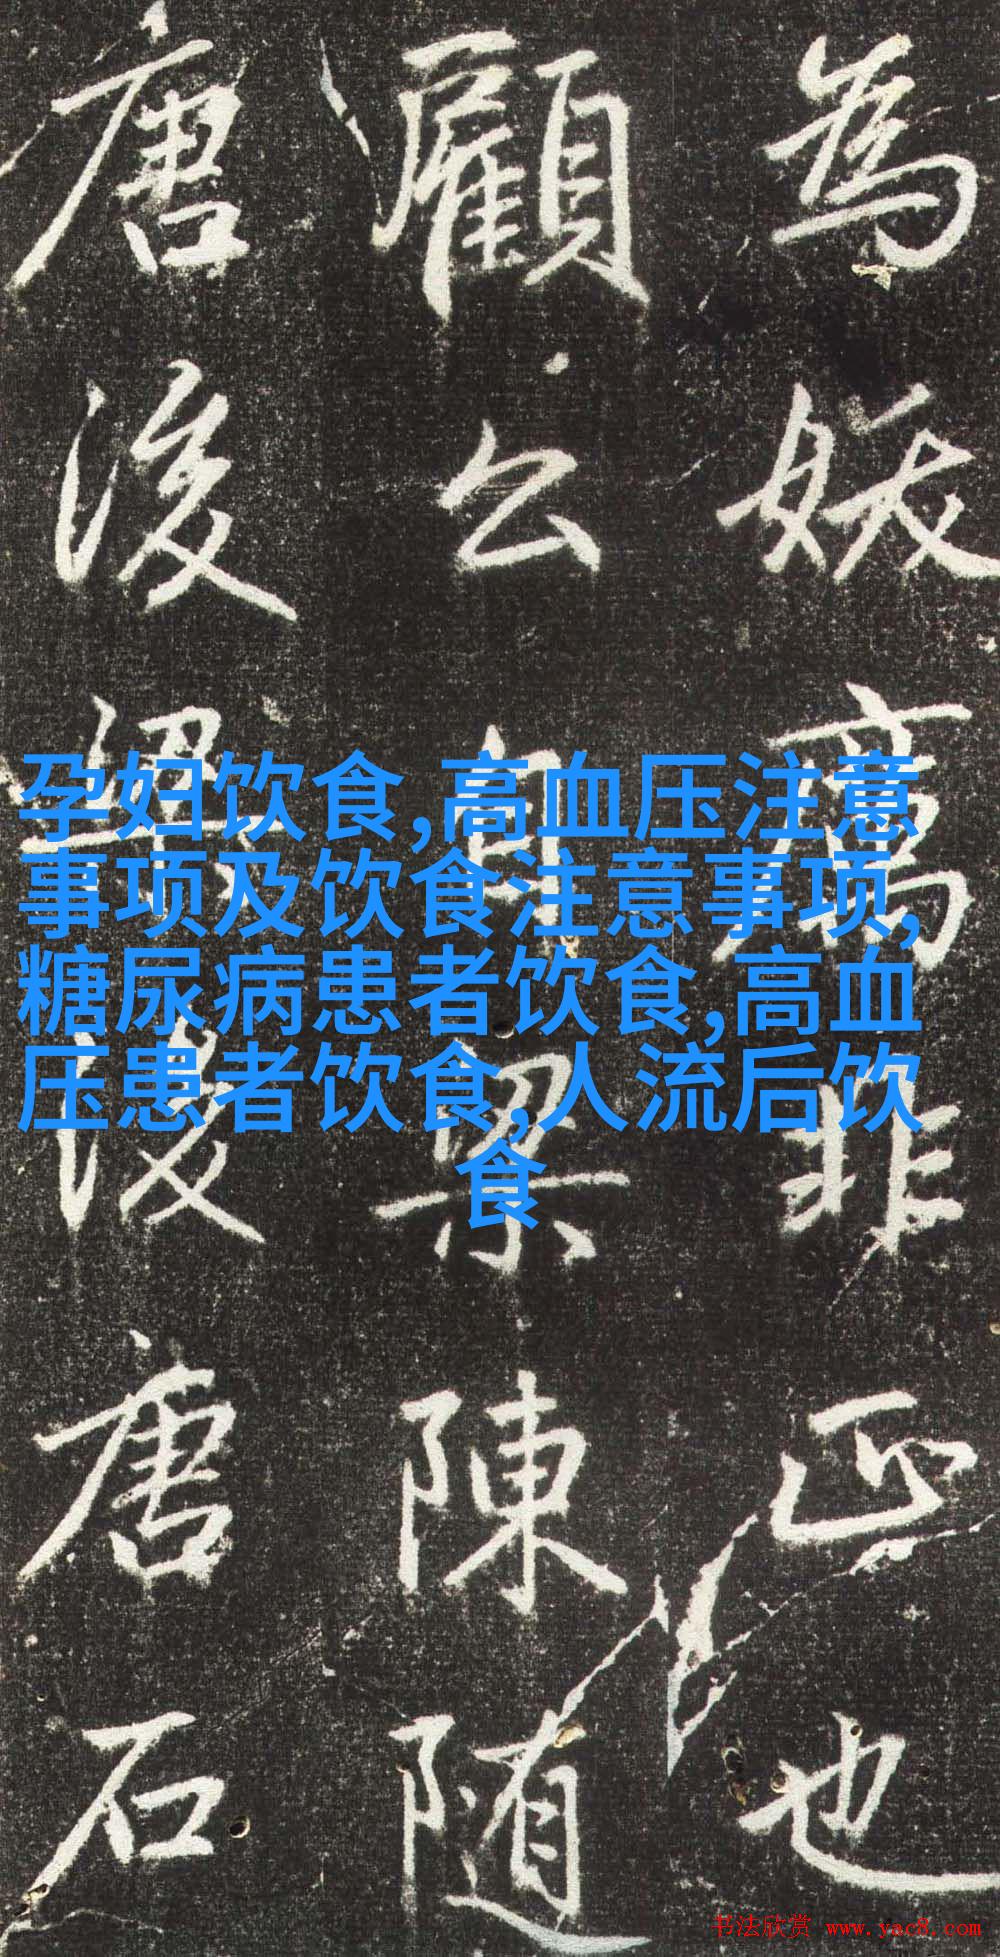 為妖厲非正也
顧公自梁陳随
唐後梁後唐石
孕妇饮食,高血压注意
事项及饮食注意事项,
糖尿病患者饮食,高血
压患者饮食,人流后饮
食
书法欣赏 www.yac8.com